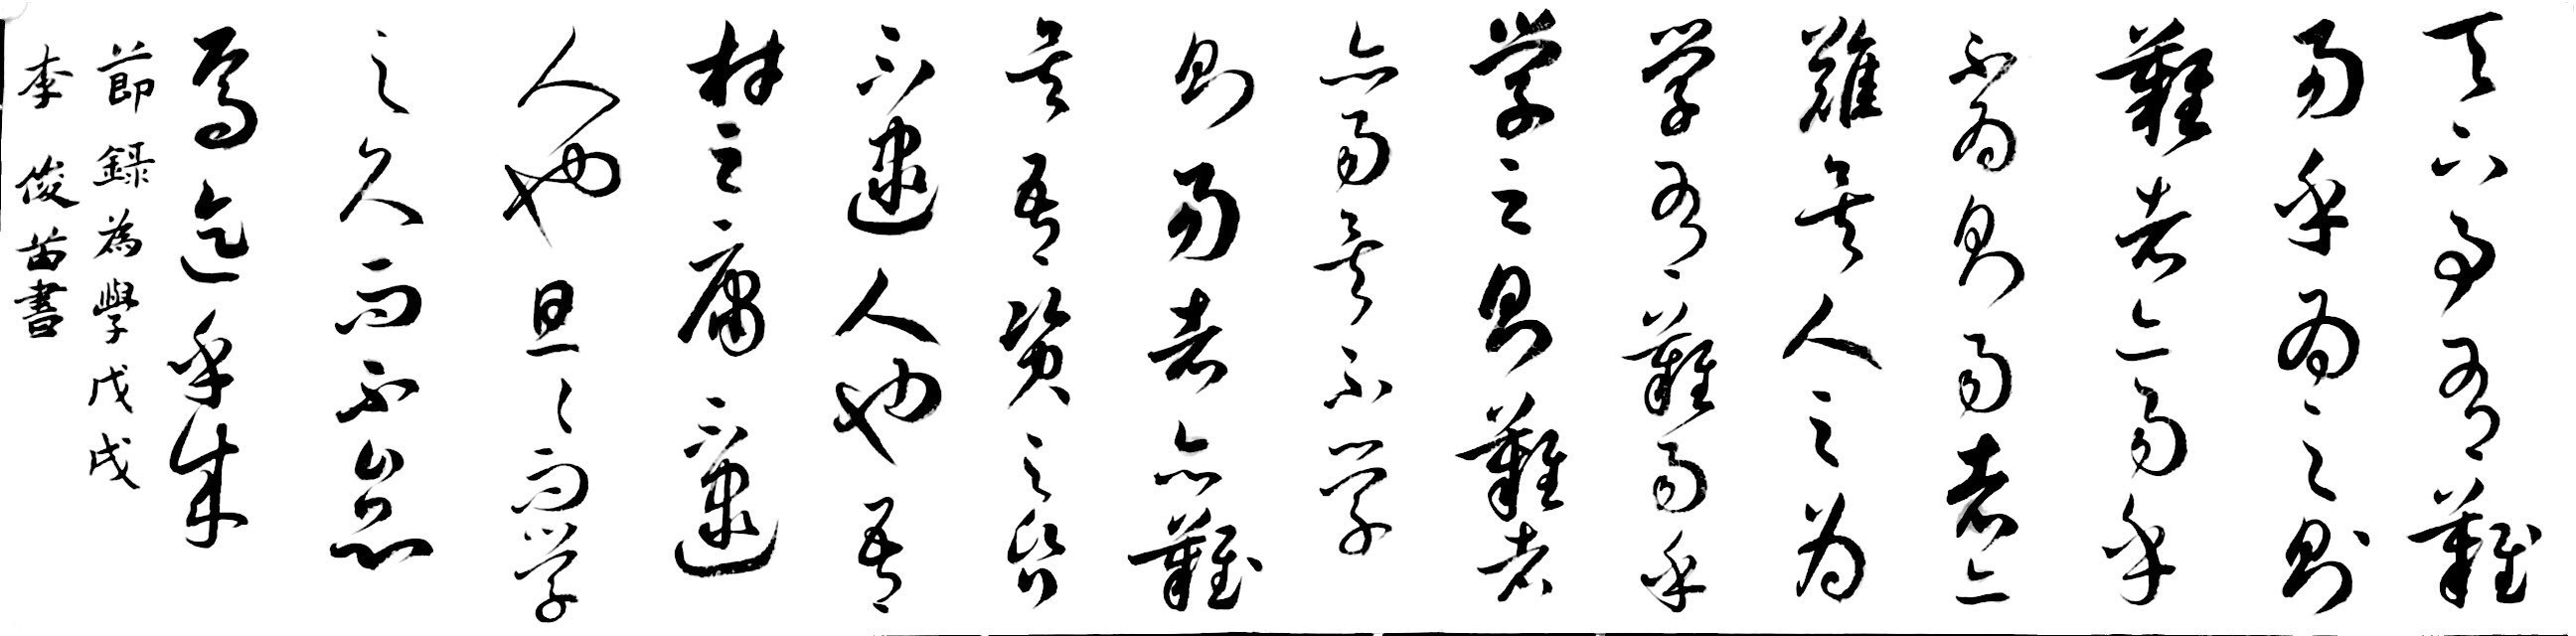 天下事有難
易乎為之則
難者亦易乎
不為則易者亦
難矣人之為
学有難易乎
学之則難者
亦易矣不学
則易者亦難
矣吾資之昏
不逮人也吾
材之庸不逮
人也旦々而学
之久而不怠
焉迄乎成
節録為學戊戌
李俊苗書